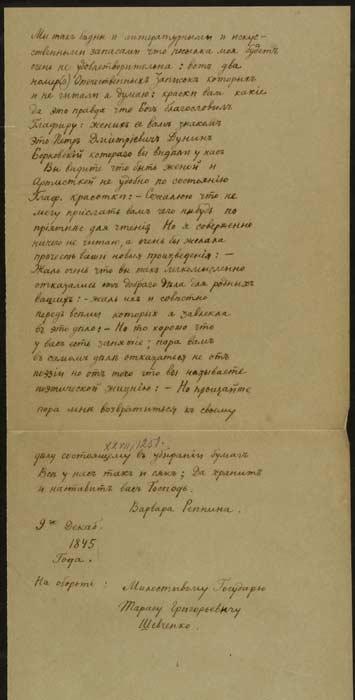 Мы такъ бѣдны и литературными и искус-
ственными запасами что посылка моя будетъ
очень не удовлетворительна: вотъ два
номер(а) Отечественныхъ Записокъ которыхъ
и не читала я думаю; краски вам какіе
да это правда что Богъ благословилъ
Глафиру: женихъ ее вамъ знакомъ
это Петръ Дмитріевичъ Дунинъ
Борковскій котораго вы видали у насъ
Вы видите что быть женой и
Артисткой не удобно по состоянію
Глаф. красотки: - Сожалѣю что не
могу прислать вамъ чего нибудь по
пріятнѣе для чтенія Но я совершенно
ничего не читаю, а очень бы желала
прочесть ваши новыя произведенія: -
Жаль очень что вы такъ легкомысленно
отказались отъ добраго дѣла для родныхъ
вашихъ: - жаль ихъ и совѣстно
передъ всѣми которыхъ я завлекла
въ это дѣло: - Но то хорошо что
у васъ есть занятіе; пора вамъ
въ самомъ дѣлѣ отказаться не отъ
поэзіи но отъ того что вы называете
поэтической жизнію: - Но прощайте
пора мнѣ возвратиться къ своему
XXVII, 1251.
дѣлу состоящему въ убираніи бумагъ
Все у насъ такъ и сякъ; Да хранитъ
и наставитъ васъ Господь.
Варвара Репнина.
9го Декаб.
1845
Года.
На оборотѣ: Милостивому Государю
Тарасу Григорьевичу
Шевченко.